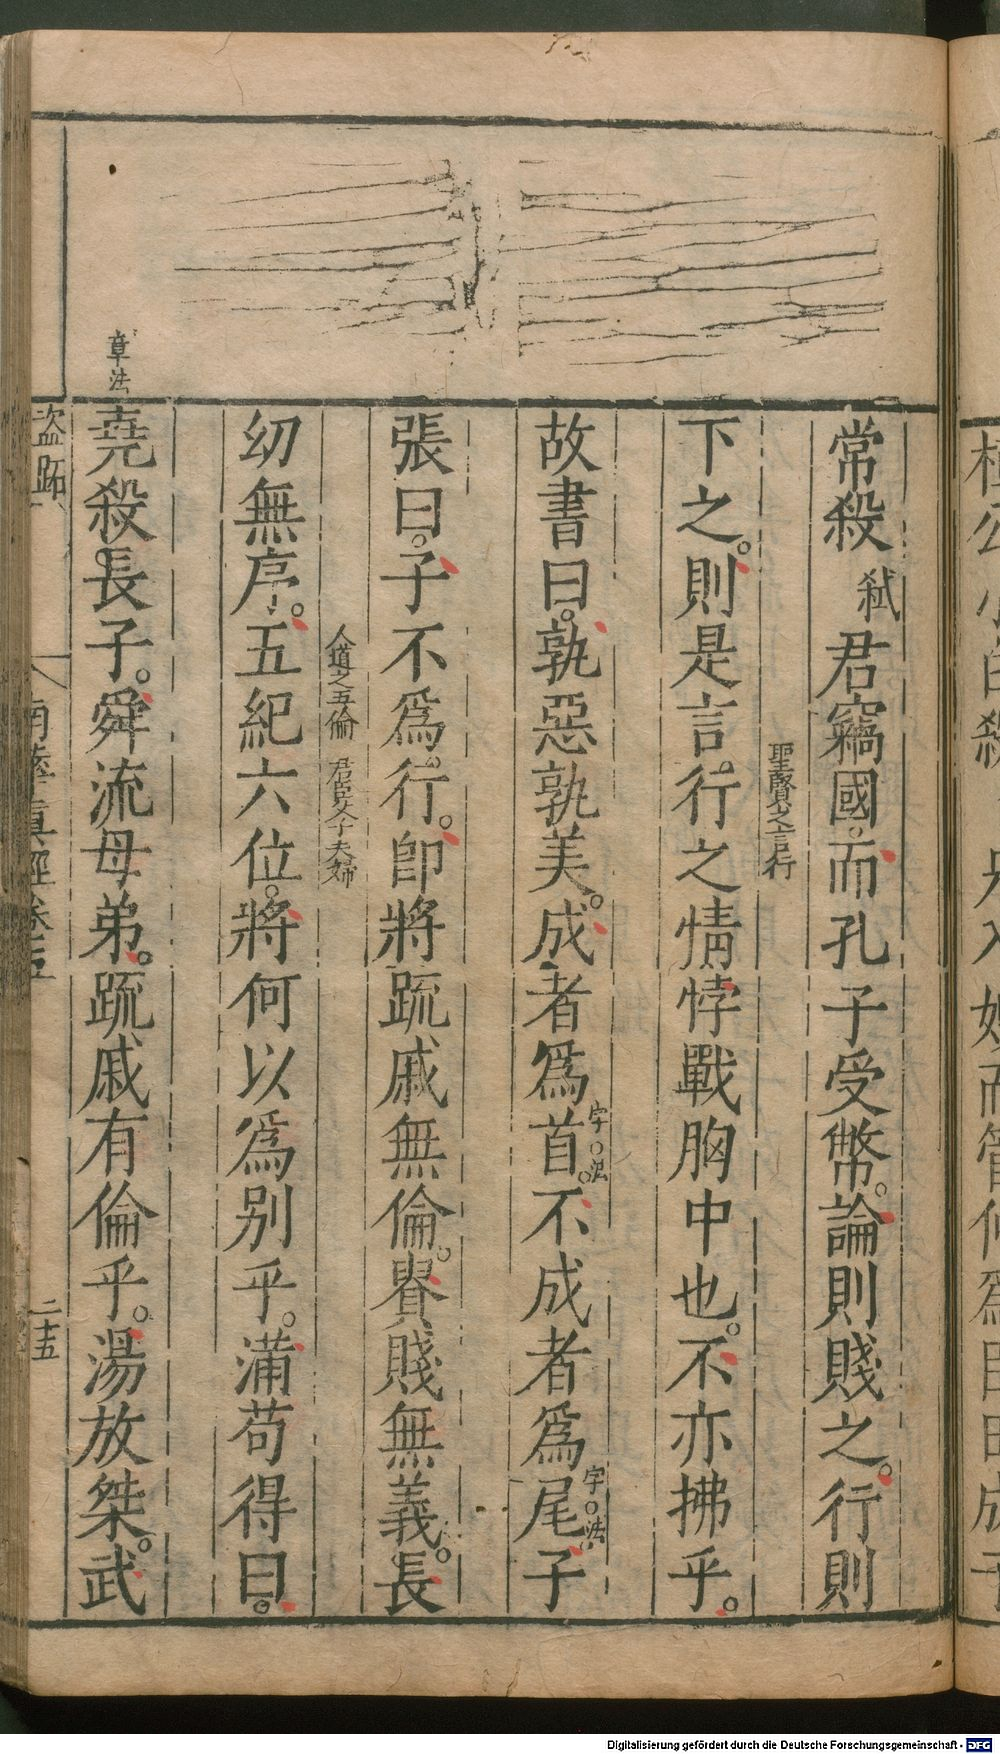 常殺弑君竊國。而孔子受幣。論則賤之。行則
聖賢之言行
下之。則是言。行之情悖戰胸中也。不亦拂乎。
故書曰。孰惡孰美。成者爲首。不成者爲尾子
字○法
字○法
張曰。子不爲行。卽將疏戚無倫。貴賤無義。長
人道之五倫 君臣父子夫婦
幼無序。五紀六位。將何以爲別乎。滿苟得曰。
章法
堯殺長子。舜流母弟。疏戚有倫乎。湯放桀。武
盜跖
南華眞經卷五
二十五
Digitalisierung gefördert durch die Deutsche Forschungsgemeinschaft - DFG